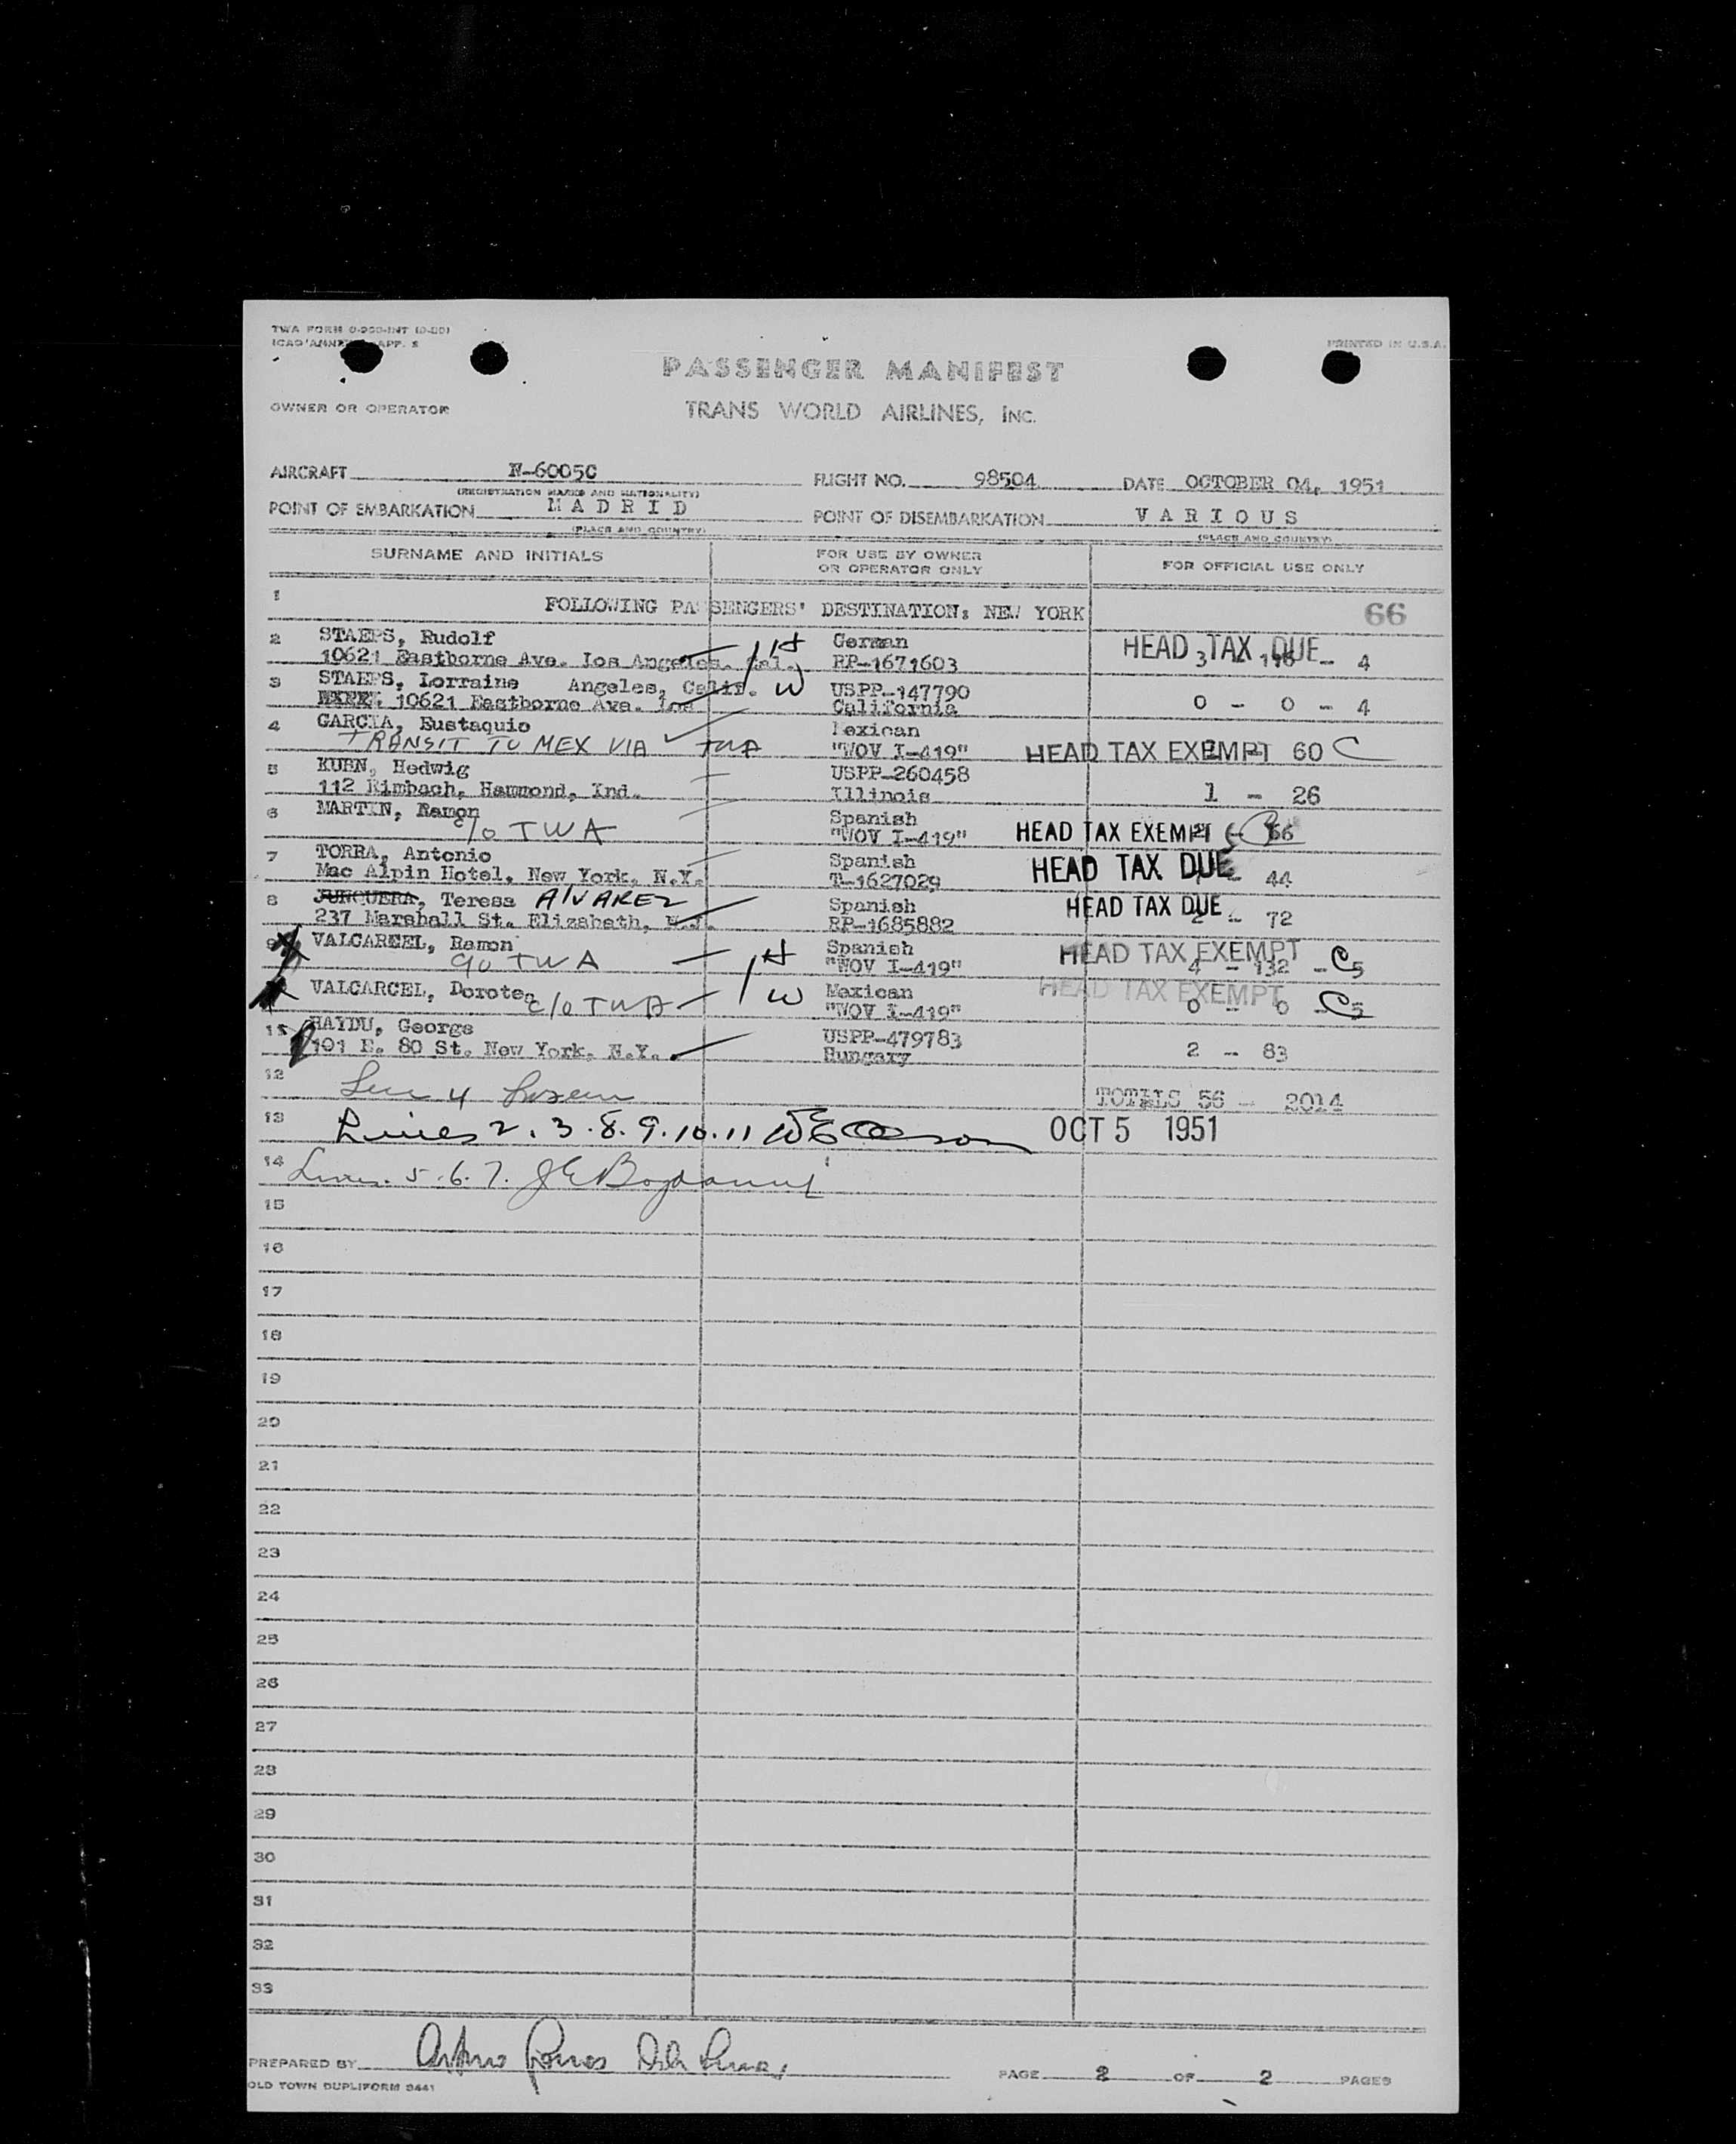 TWA FORM
ICAO ANNEX APP.
PRINTED IN U.S.A.
PASSENGER MANIFEST
OWNER OR OPERATOR
TRANS WORLD AIRLINES, INC.
AIRCRAFT N-6005C FLIGHT NO. 98504 DATE OCTOBER 04, 1951
(REGISTRATION MARKS AND NATIONALITY)
POINT OF EMBARKATION MADRID POINT OF DISEMBARKATION VARIOUS
(PLACE AND COUNTRY) (PLACE AND COUNTRY)
SURNAME AND INITIALS FOR USE BY OWNER OR OPERATOR ONLY FOR OFFICIAL USE ONLY
1 FOLLOWING PASSENGERS' DESTINATION: NEW YORK 66
2 STAEPS, Rudolf German HEAD TAX DUE
10621 Eastborne Ave. Los Angeles. Cal. RP-1671603 3 - 4
3 STAEPS, Lorraine Angeles, Calif. W USPP-147790
10621 Eastborne Ave. Los California 0 - 0 - 4
4 GARCIA, Eustaquio Mexican
TRANSIT TO MEX VIA TWA "WOV I-419" HEAD TAX EXEMPT 60 C
5 KUHN, Hedwig USPP-260458
112 Rimbach, Hammond, Ind. Illinois 1 - 26
6 MARTIN, Ramon Spanish
c/o TWA "WOV I-419" HEAD TAX EXEMPT 66
7 TORRA, Antonio Spanish HEAD TAX DUE
Mac Alpin Hotel, New York, N.Y. T-1627029 44
8 JUNQUERA, Teresa ALVAREZ Spanish HEAD TAX DUE
237 Marshall St. Elizabeth, N.J. RP-1685882 2 - 72
9 VALCARCEL, Ramon Spanish HEAD TAX EXEMPT
c/o TWA "WOV I-419" 4 - 132 - C5
VALCARCEL, Dorotea Mexican HEAD TAX EXEMPT
c/o TWA W "WOV I-419" 0 - 0 - C5
11 HAYDU, George USPP-479783
101 E. 80 St. New York, N.Y. Hungary 2 - 83
12 Line 4 TOTALS 56 - 2014
13 Lines 2.3.8.9.10.11 OCT 5 1951
14 Lines 5.6.7.
15
16
17
18
19
20
21
22
23
24
25
26
27
28
29
30
31
32
33
PREPARED BY PAGE 2 OF 2 PAGES
OLD TOWN DUPLIFORM 9441